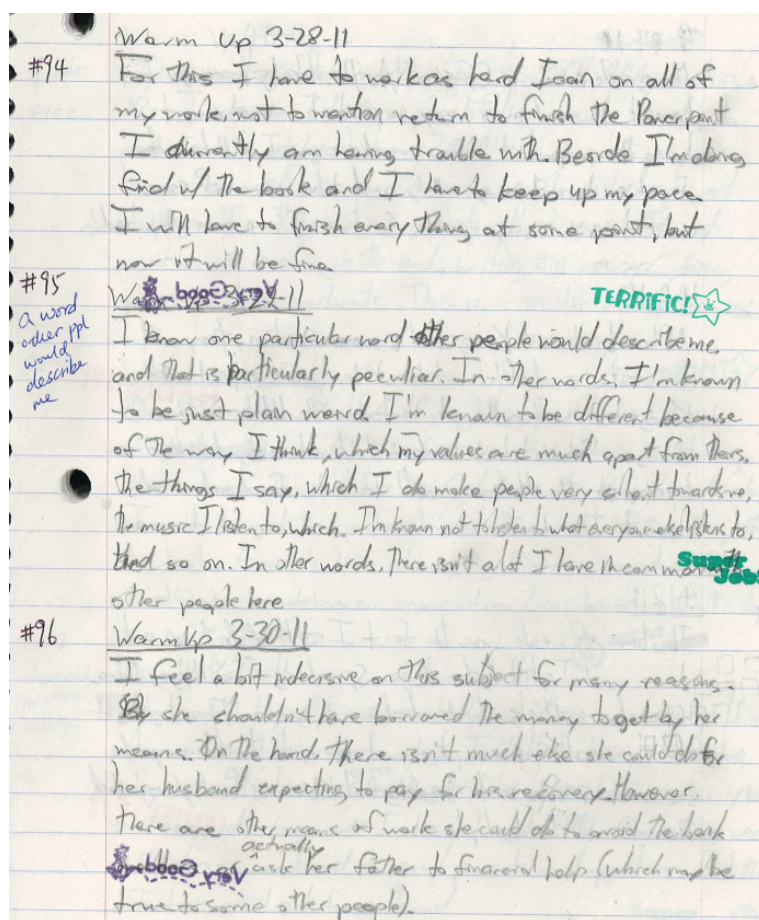 Warm Up 3-28-11
#94 For this I have to work as hard I can on all of
my work, not to mention return to finish the Powerpoint
I currently am having trouble with. Beside I'm doing
find w/ the book and I have to keep up my pace.
I will have to finish every thing at some point, but
now it will be fine.
#95 Warm Up 3-29-11
Very Good
TERRIFIC!
a word
other ppl
would
describe
me
I know one particular word other people would describe me,
and that is particularly peculiar. In other words, I'm known
to be just plain weird. I'm known to be different because
of the way I think, which my values are much apart from theirs,
the things I say, which I do make people very silent towards me,
the music I listen to, which. I'm known not to listen to what everyone else listens to,
and so on. In other words, there isn't a lot I have in common with
Super
Job!
other people here
#96 Warm Up 3-30-11
I feel a bit indecisive on this subject for many reasons.
she shouldn't have borrowed the money to get by her
means. On the hand, there isn't much else she could do for
her husband expecting to pay for his recovery. However,
there are other means of work she could do to avoid the bank
or actually ask her father to financial help (which may be
Very Good
true to some other people).